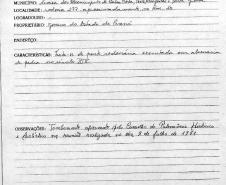 MUNICÍPIO: divisa dos Municípios de
LOCALIDADE: rodovia 277, aproximadamente no km
LOGRADOURO: -
PROPRIETÁRIO: Governo do Estado do Paraná
ENDEREÇO:
CARACTERÍSTICAS: Trata-se de ponte rodoviária executada em alvenaria
de pedra no século XIX.
OBSERVAÇÕES: Tombamento aprovado pelo Conselho do Patrimônio Histórico
e Artístico em reunião realizada no dia de julho de